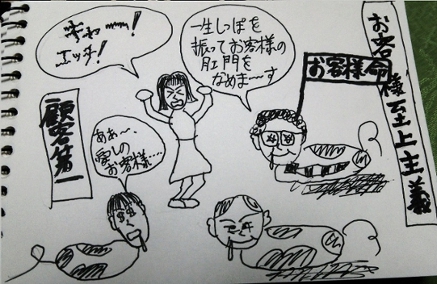 お客様至上主義
お客様命
一生しっぽを
振ってお客様の
肛門を
なめま〜す
きゃーー!
エッチ!
顧客第一
ああ〜
愛しの
お客様…